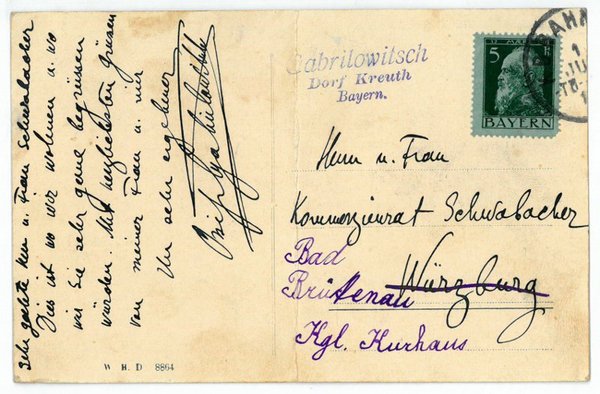 Sehr geehrte Herr u. Frau Schwabacher
Dies ist wo wir wohnen u. wo
wir Sie sehr gerne begrüssen
würden. Mit herzlichsten Grüssen
von meiner Frau u. mir
Ihr sehr ergebener
Ossip Gabrilowitsch
W. H. D 8864
Gabrilowitsch
Dorf Kreuth
Bayern.
5
BAYERN
BAHN
1
JU
Herrn u. Frau
Kommerzienrat Schwabacher
Würzburg
Bad
Brückenau
Kgl. Kurhaus